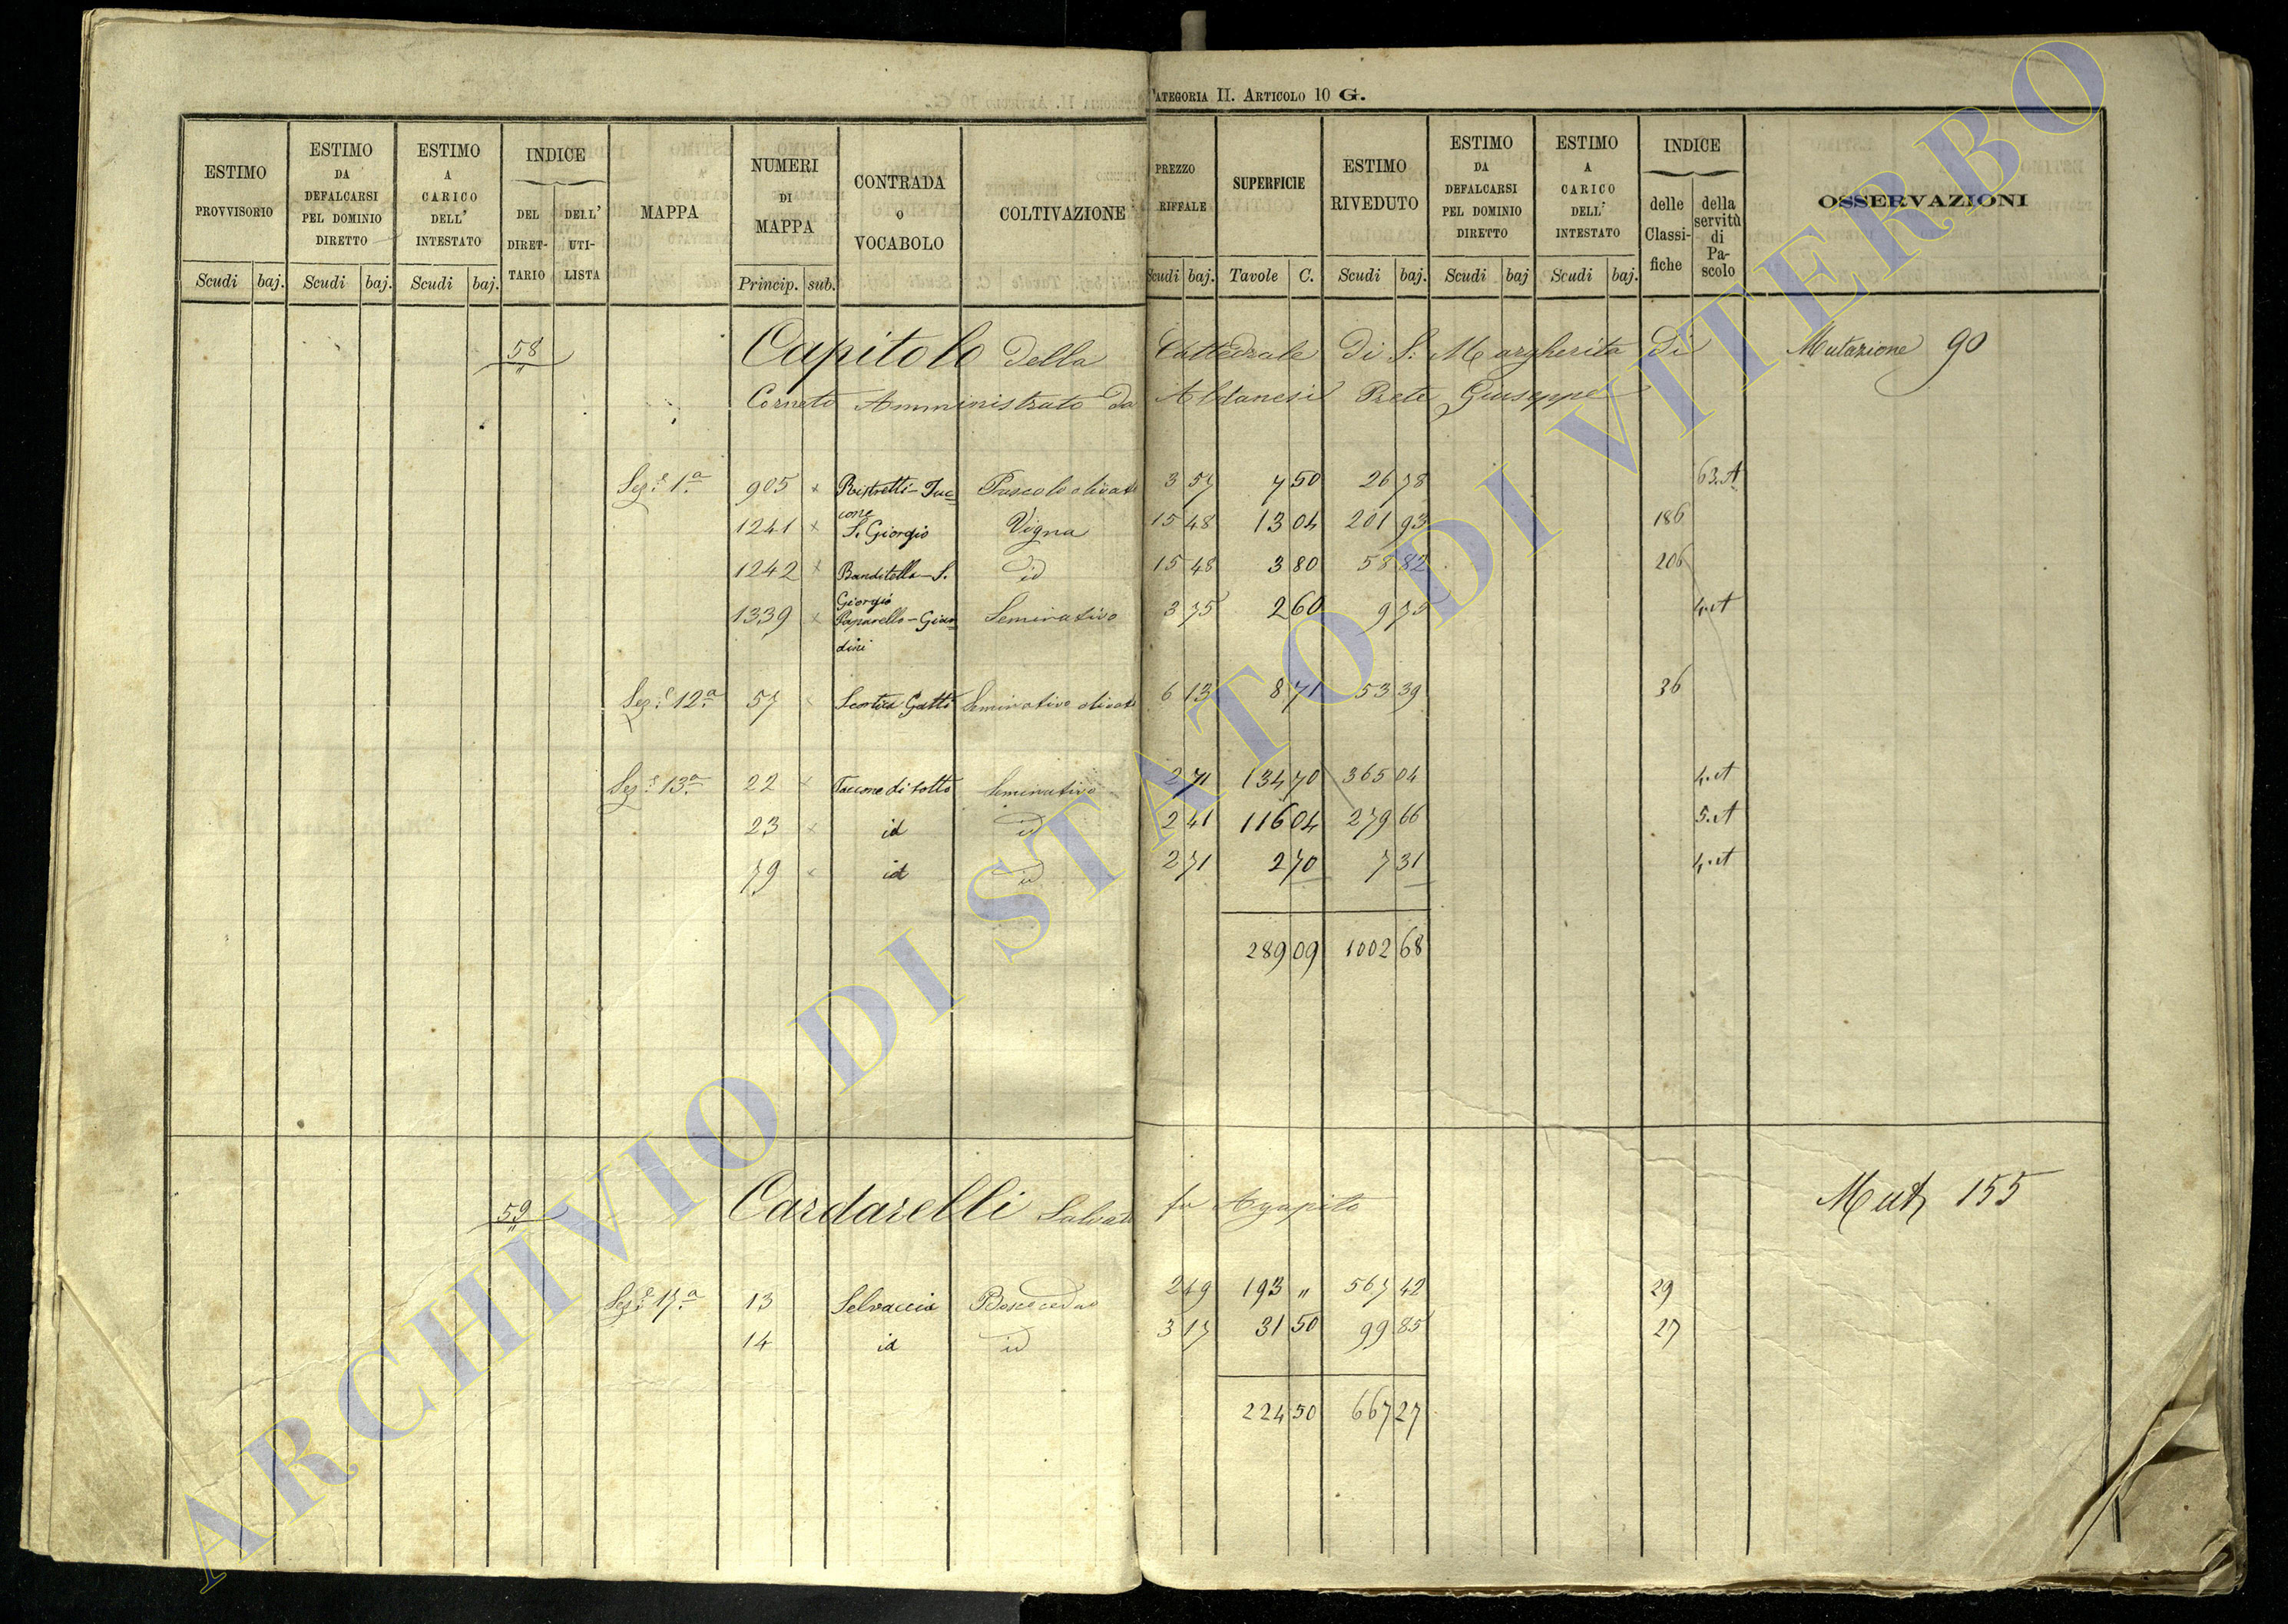 CATEGORIA II. ARTICOLO 10 G.
ESTIMO PROVVISORIO | ESTIMO DA DEFALCARSI PEL DOMINIO DIRETTO | ESTIMO A CARICO DELL' INTESTATO | INDICE DEL DIRETTARIO | DELL' UTILISTA | MAPPA | NUMERI DI MAPPA | CONTRADA O VOCABOLO | COLTIVAZIONE | PREZZO RIFFALE | SUPERFICIE | ESTIMO RIVEDUTO | ESTIMO DA DEFALCARSI PEL DOMINIO DIRETTO | ESTIMO A CARICO DELL' INTESTATO | INDICE delle Classifiche | della servitù di Pascolo | OSSERVAZIONI
Scudi baj. Scudi baj. Scudi baj. Princip. sub. Scudi baj. Tavole C. Scudi baj. Scudi baj Scudi baj.
58 Capitolo della Cattedrale di S. Margherita di Mutazione 90
Corneto Amministrato da Aldanesi Prete Giuseppe
Sez.e 1.a 905 x Ristretti - Tuc- Pascolo olivato 3 57 7 50 26 78 63.A
cone
1241 x S. Giorgio Vigna 15 48 13 04 201 93 186
1242 x Banditella - S. id 15 48 3 80 58 82 206
Giorgio
1339 x Paparello - Giar- Seminativo 3 75 2 60 9 75 4.A
dini
Sez.e 12.a 57 x Scortica Gatti Seminativo olivato 6 13 8 71 53 39 36
Sez.e 13.a 22 x Taccone di sotto Seminativo 2 71 134 70 365 04 4.A
23 x id id 2 41 116 04 279 66 5.A
79 x id id 2 71 2 70 7 31 4.A
289 09 1002 68
59 Cardarelli Salvat. fu Agapito Mutz 155
Sez.e 17.a 13 Selvaccia Bosco ceduo 2 49 193 " 567 42 29
14 id id 3 17 31 50 99 85 27
224 50 667 27
ARCHIVIO DI STATO DI VITERBO